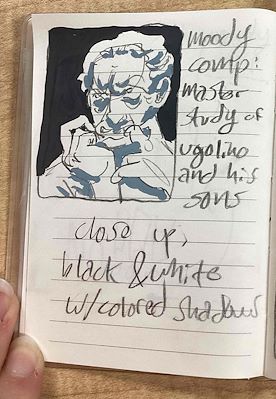 moody
comp:
master
study of
ugolino
and his
sons
close up,
black & white
w/colored shadows